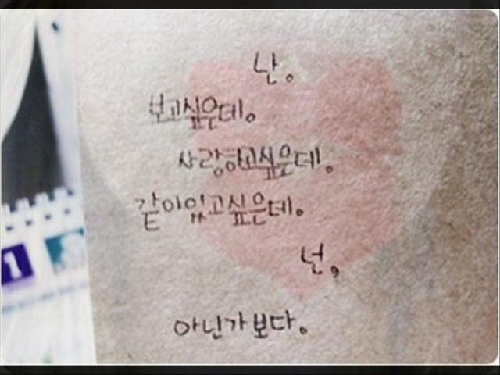 난。
보고싶은데。
사랑하고싶은데。
같이있고싶은데。
넌,
아닌가보다。
1